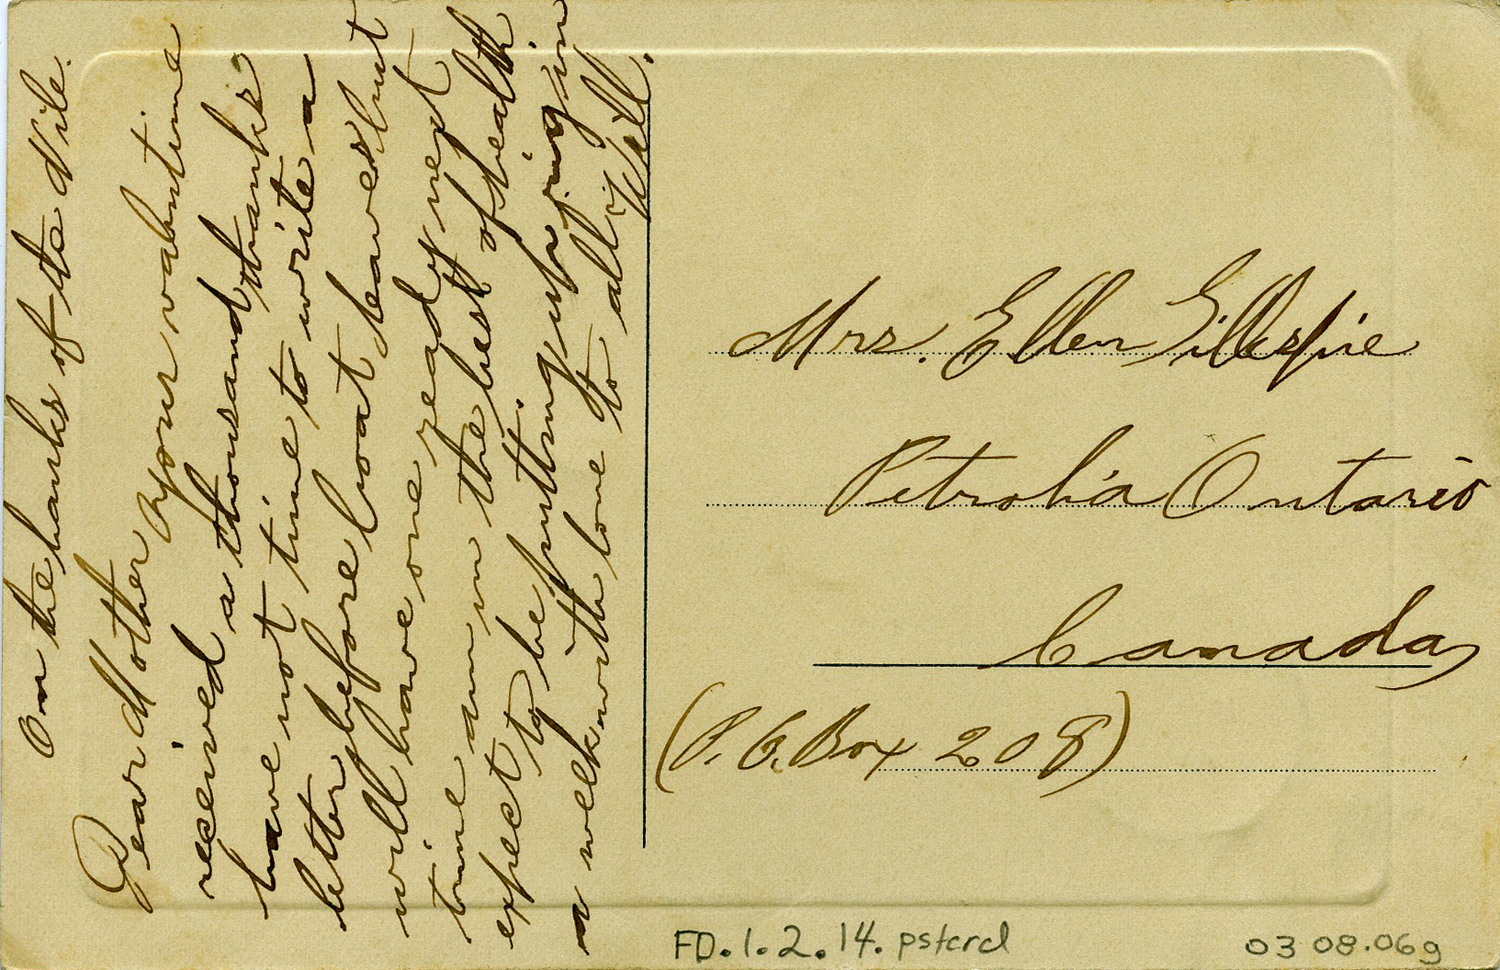 On the banks of the Nile.
Dear Mother your valintine
received a thousand thanks
have not time to write a
letter before boat leaves but
will have one ready next
time am in the best of health
expect to be putting up rig in
a week with love to all Will.
Mrs. Ellen Gillespie
Petrolia Ontario
Canada
(P.O. Box 208)
FD.1.2.14.pstcrd
03 08.069